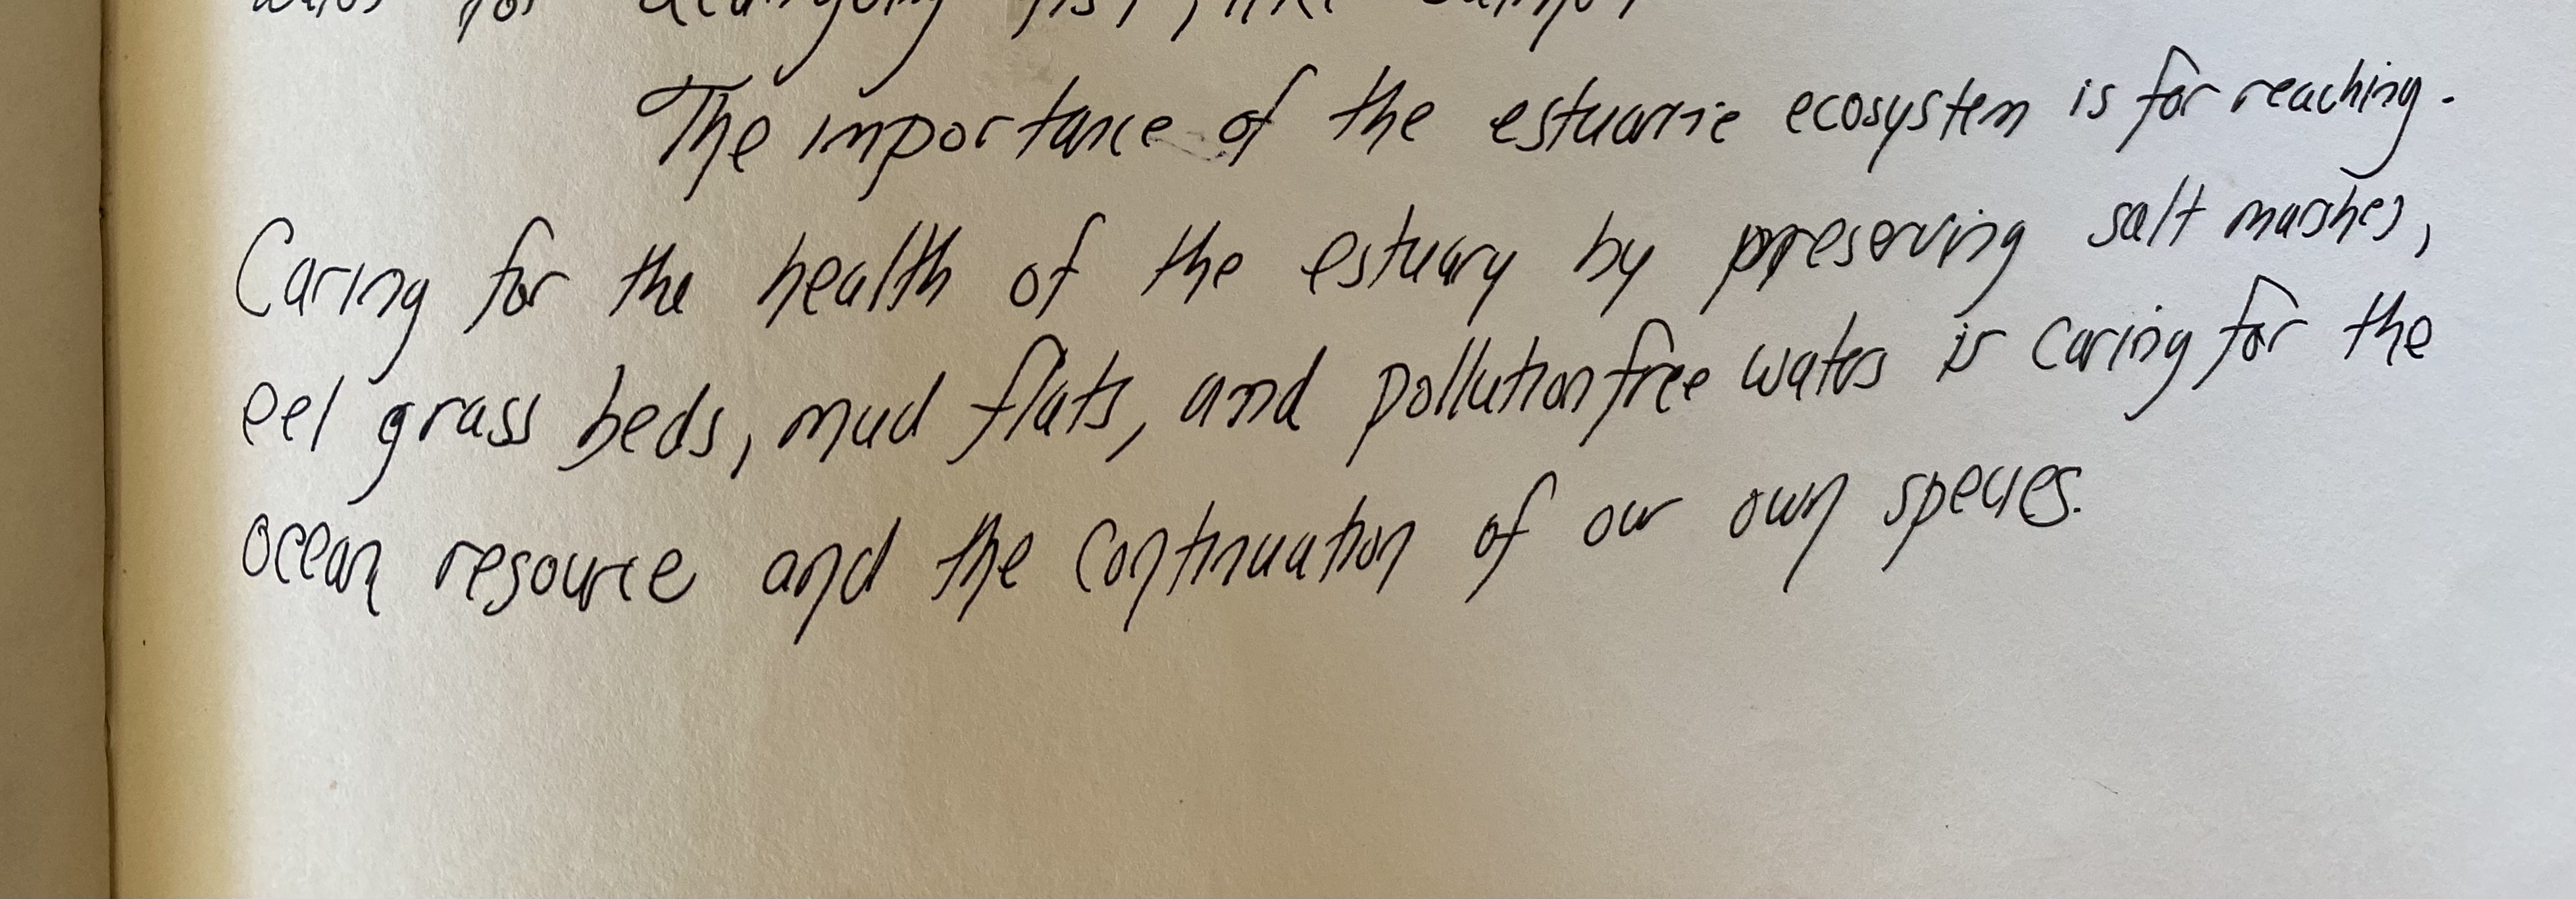 for
The importance of the estuarine ecosystem is far reaching.
Caring for the health of the estuary by preserving salt marshes,
eel grass beds, mud flats, and pollution free waters is caring for the
ocean resource and the continuation of our own species.